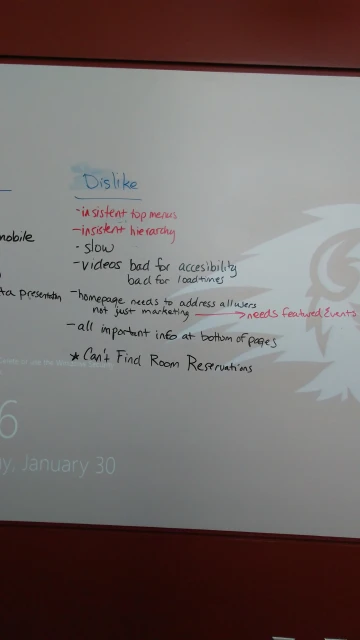 Dislike
-insistent top menus
-insistent hierarchy
- slow
-videos bad for accesibility
bad for loadtimes
-homepage needs to address all users
not just marketing → needs featured Events
-all important info at bottom of pages
* Can't Find Room Reservations
mobile
ta presentation
6
y, January 30